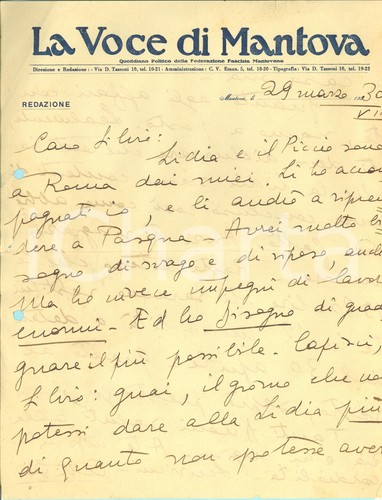 La Voce di Mantova
Quotidiano Politico della Federazione Fascista Mantovana
Direzione e Redazione: - Via D. Tassoni 10, tel. 10-21 - Amministrazione: C. V. Eman. 5, tel. 10-20 - Tipografia: Via D. Tassoni 10, tel. 19-22
REDAZIONE
Mantova, li 29 marzo 1930
VIII
Caro Silvio:
Lidia e il Piccio sono
a Roma dai miei. Li ho accom
pagnati io, e li andrò a ripren
dere a Pasqua - Avrei molto bi
sogno di svago e di riposo, anch
Ma ho invece impegni di lavoro
enormi - Ed ho bisogno di guada
gnare il più possibile. Capisci,
Silvio: guai, il giorno che no
potessi dare alla Lidia più
di quanto non potesse aver